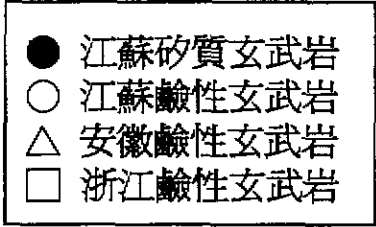 ● 江蘇矽質玄武岩
○ 江蘇鹼性玄武岩
△ 安徽鹼性玄武岩
□ 浙江鹼性玄武岩